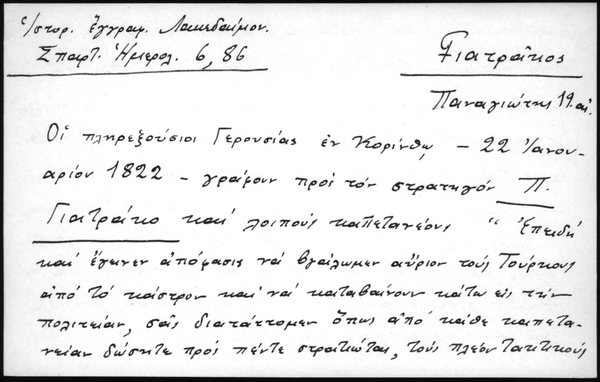 Ἱστορ. ἔγγραφ. Λακεδαίμον.
Σπαρτ. Ἡμερολ. 6, 86
Γιατρᾶκος
Παναγιώτης 19 αἰ.
Οἱ πληρεξούσιοι Γερουσίας ἐν Κορίνθῳ – 22 Ἰανου-
αρίου 1822 – γράφουν πρός τόν στρατηγόν Π.
Γιατράκο καί λοιπούς καπετανέους "Ἐπειδή
καί ἔγινεν ἀπόφασις νά βγάλωμεν αὔριον τούς Τούρκους
ἀπό τό κάστρον καί νά καταβαίνουν κάτω εἰς τήν
πολιτείαν, σᾶς διατάττομεν ὅπως ἀπό κάθε καπετα-
νείαν δώσητε πρός πέντε στρατιώτας, τούς πλέον τακτικούς